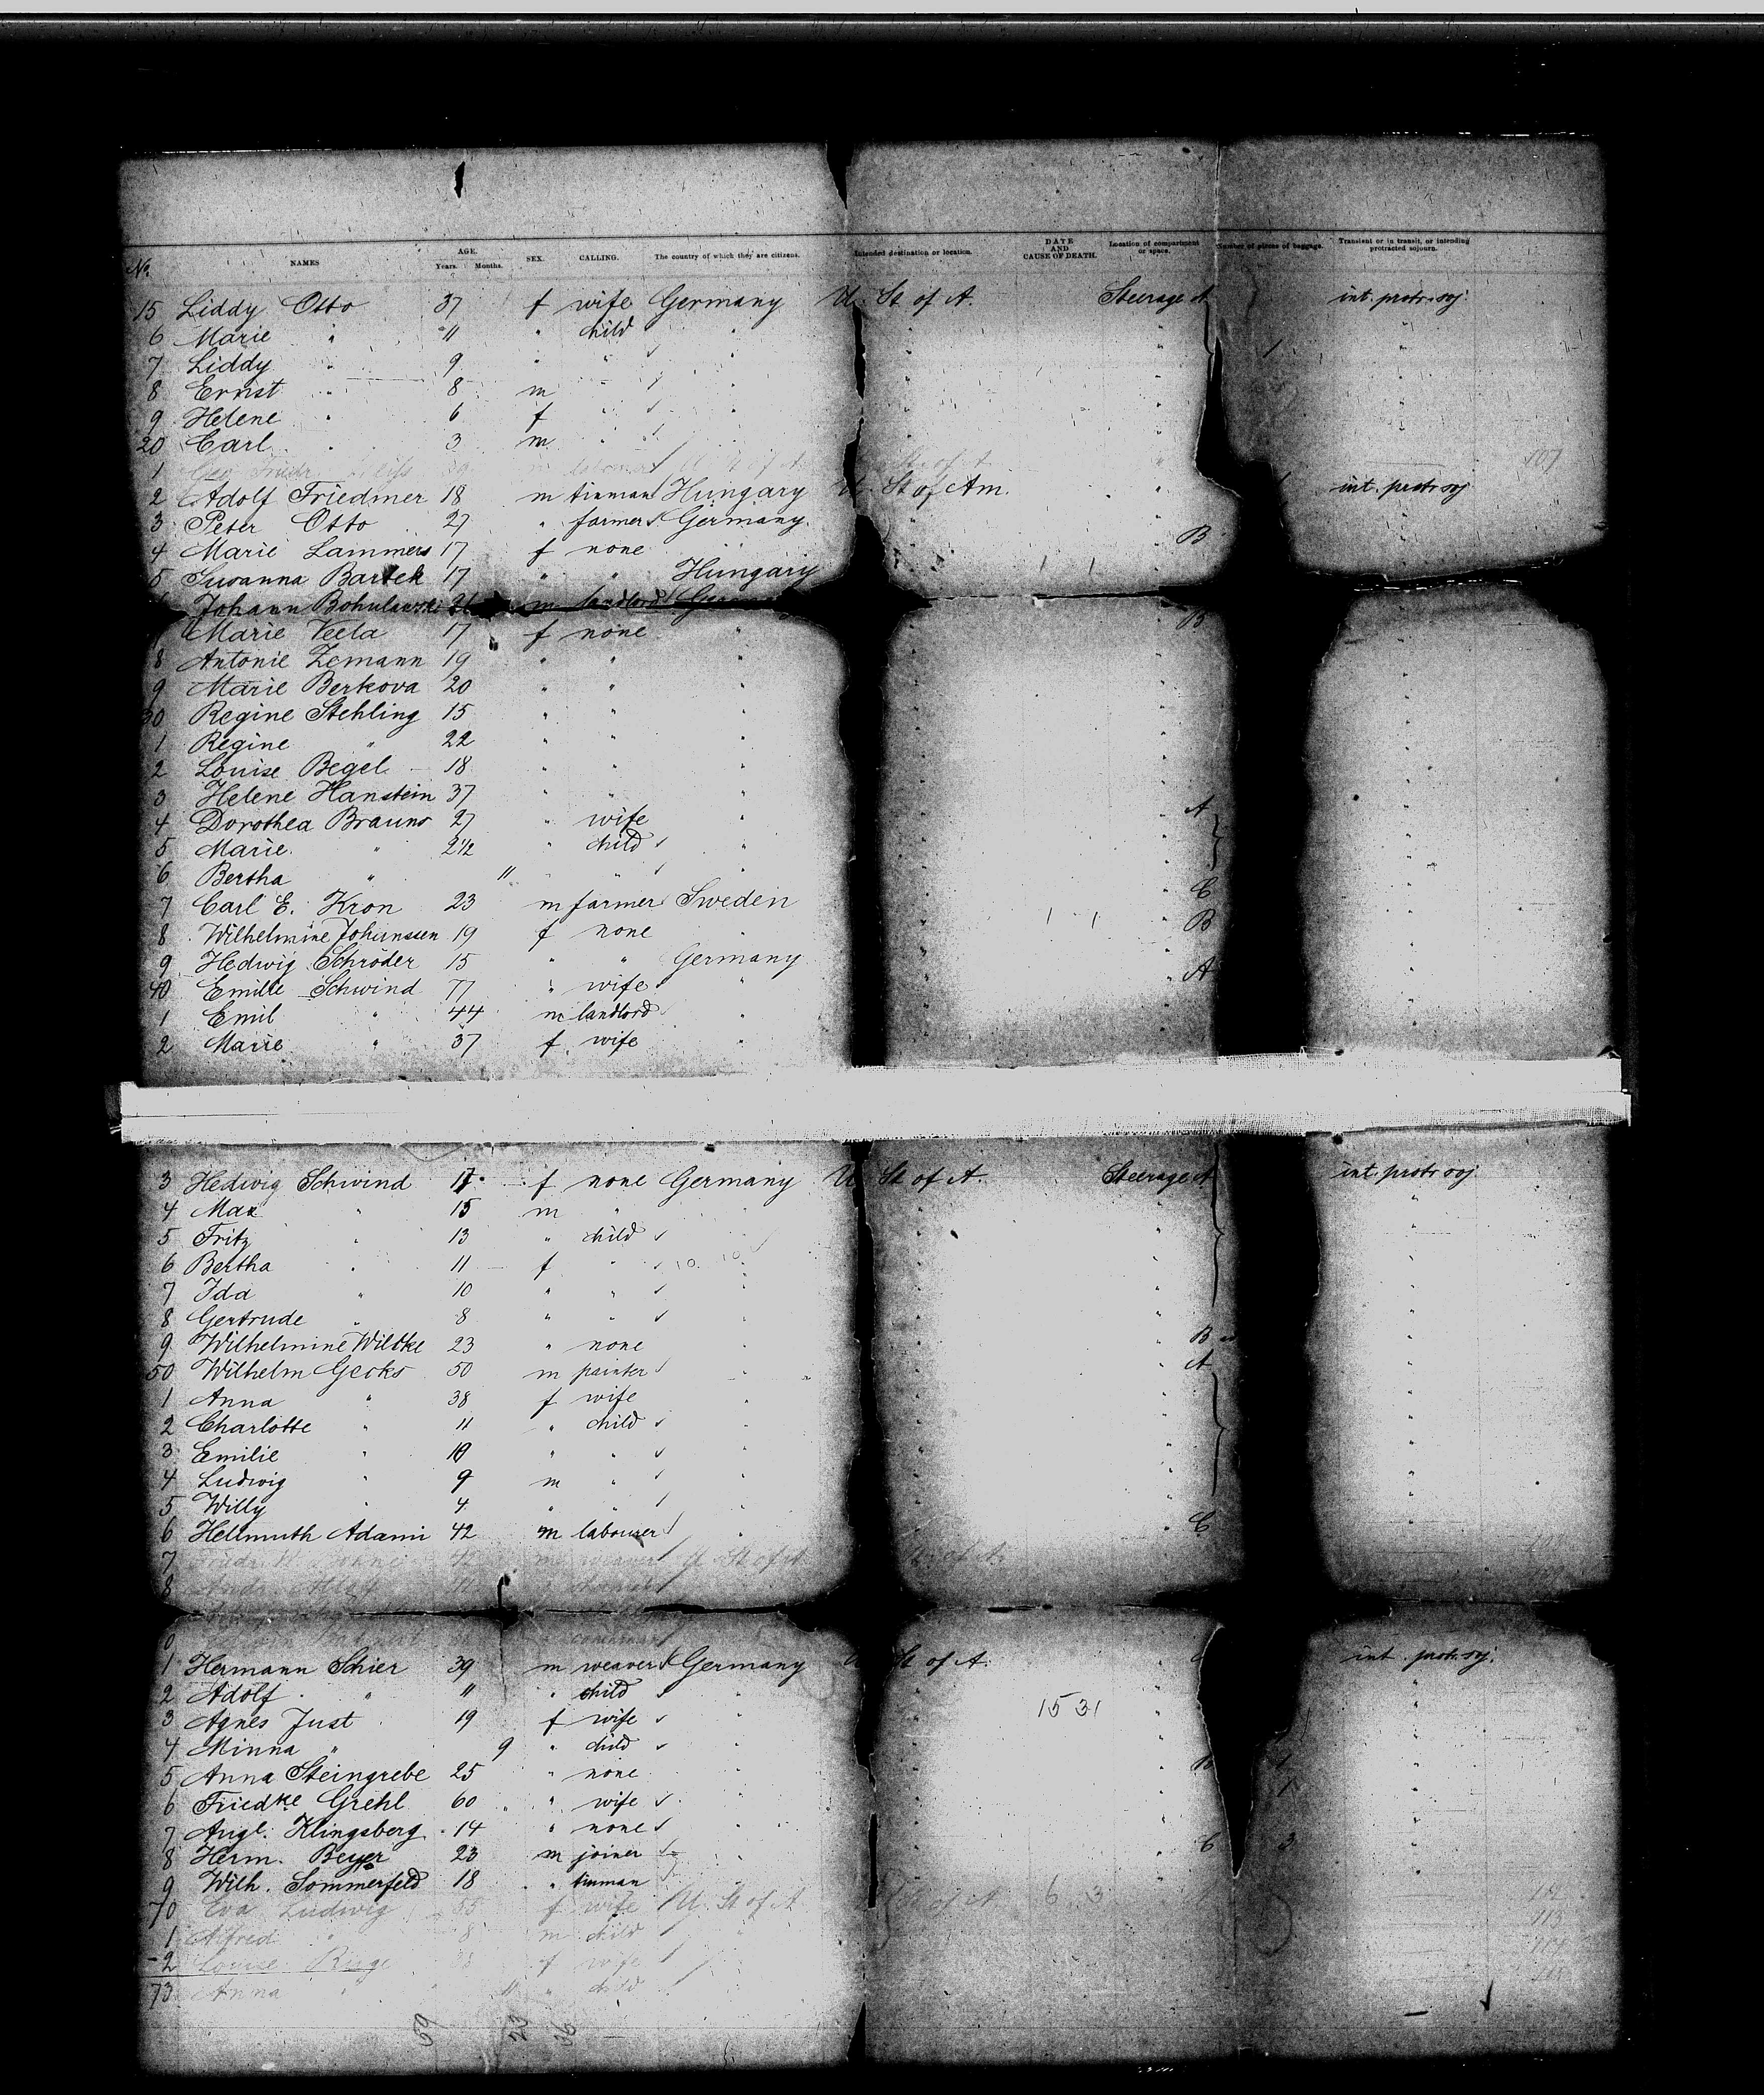 No. NAMES AGE. Years. Months. SEX. CALLING. The country of which they are citizens. Intended destination or location. DATE AND CAUSE OF DEATH. Location of compartment or space. Number of pieces of baggage. Transient or in transit, or intending protracted sojourn.
15 Liddy Otto 37 f wife Germany U. St of A. Steerage A int. protr. soj.
6 Marie " 11 " child "
7 Liddy " 9 " " "
8 Ernst " 8 m " "
9 Helene " 6 f " "
20 Carl " 3 m " "
1 labourer U St of A St of A 107
2 Adolf Friedmer 18 m tinman Hungary U. St of Am. 1 int. protr soj
3 Peter Otto 27 " farmer Germany
4 Marie Lammers 17 f none " B
5 Susanna Bartek 17 " " Hungary
Johann 26 m landlord
Marie Veela 17 f none " B
8 Antonie Zemann 19 " " "
9 Marie Berkova 20 " " "
30 Regine Stehling 15 " " "
1 Regine " 22 " " "
2 Louise Begel 18 " " "
3 Helene Hanstein 37 " " "
4 Dorothea Brauns 27 " wife " A
5 Marie " 2 1/2 " child "
6 Bertha " 11 " " "
7 Carl E. Kron 23 m farmer Sweden C
8 Wilhelmine Johanssen 19 f none " B
9 Hedwig Schröder 15 " " Germany
40 Emilie Schwind 77 " wife " A
1 Emil " 44 m landlord "
2 Marie " 37 f wife "
3 Hedwig Schwind 17 f none Germany U St of A. Steerage A int. protr soj
4 Max " 15 m " "
5 Fritz " 13 " child "
6 Bertha " 11 f " "
7 Ida " 10 " " "
8 Gertrude " 8 " " "
9 Wilhelmine Wildke 23 " none " B
50 Wilhelm Gecks 50 m painter " A
1 Anna " 38 f wife "
2 Charlotte " 11 " child "
3 Emilie " 10 " " "
4 Ludwig " 9 m " "
5 Willy " 4 " " "
6 Hellmuth Adami 42 m labourer " C
7 42 m weaver U St of A St of A
8
0
1 Hermann Schier 39 m weaver Germany St of A. int. protr. soj.
2 Adolf " 11 " child "
3 Agnes Just 19 f wife " 15 31
4 Minna " 9 " child "
5 Anna Steingrebe 25 " none " B 1
6 Friedke Grehl 60 " wife " 1
7 Augl. Klingsberg 14 " none "
8 Herm. Beyer 23 m joiner " C 3
9 Wilh. Sommerfeld 18 " tinman "
70 Eva Ludwig 35 f wife U. St of A of A 6 3
1 Alfred " 8 m child 113
2 Louise f wife
73 Anna " 11 " child
59 23 36